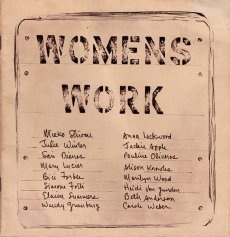 WOMENS
WORK
Mieko Shiomi
Julie Winter
Sari Dienes
Mary Lucier
Bici Forbes
Simone Forti
Elaine Summers
Wendy Greenberg
Anna Lockwood
Jackie Apple
Pauline Oliveros
Alison Knowles
Marilyn Wood
Heidi Von Gunden
Beth Anderson
Carole Weber